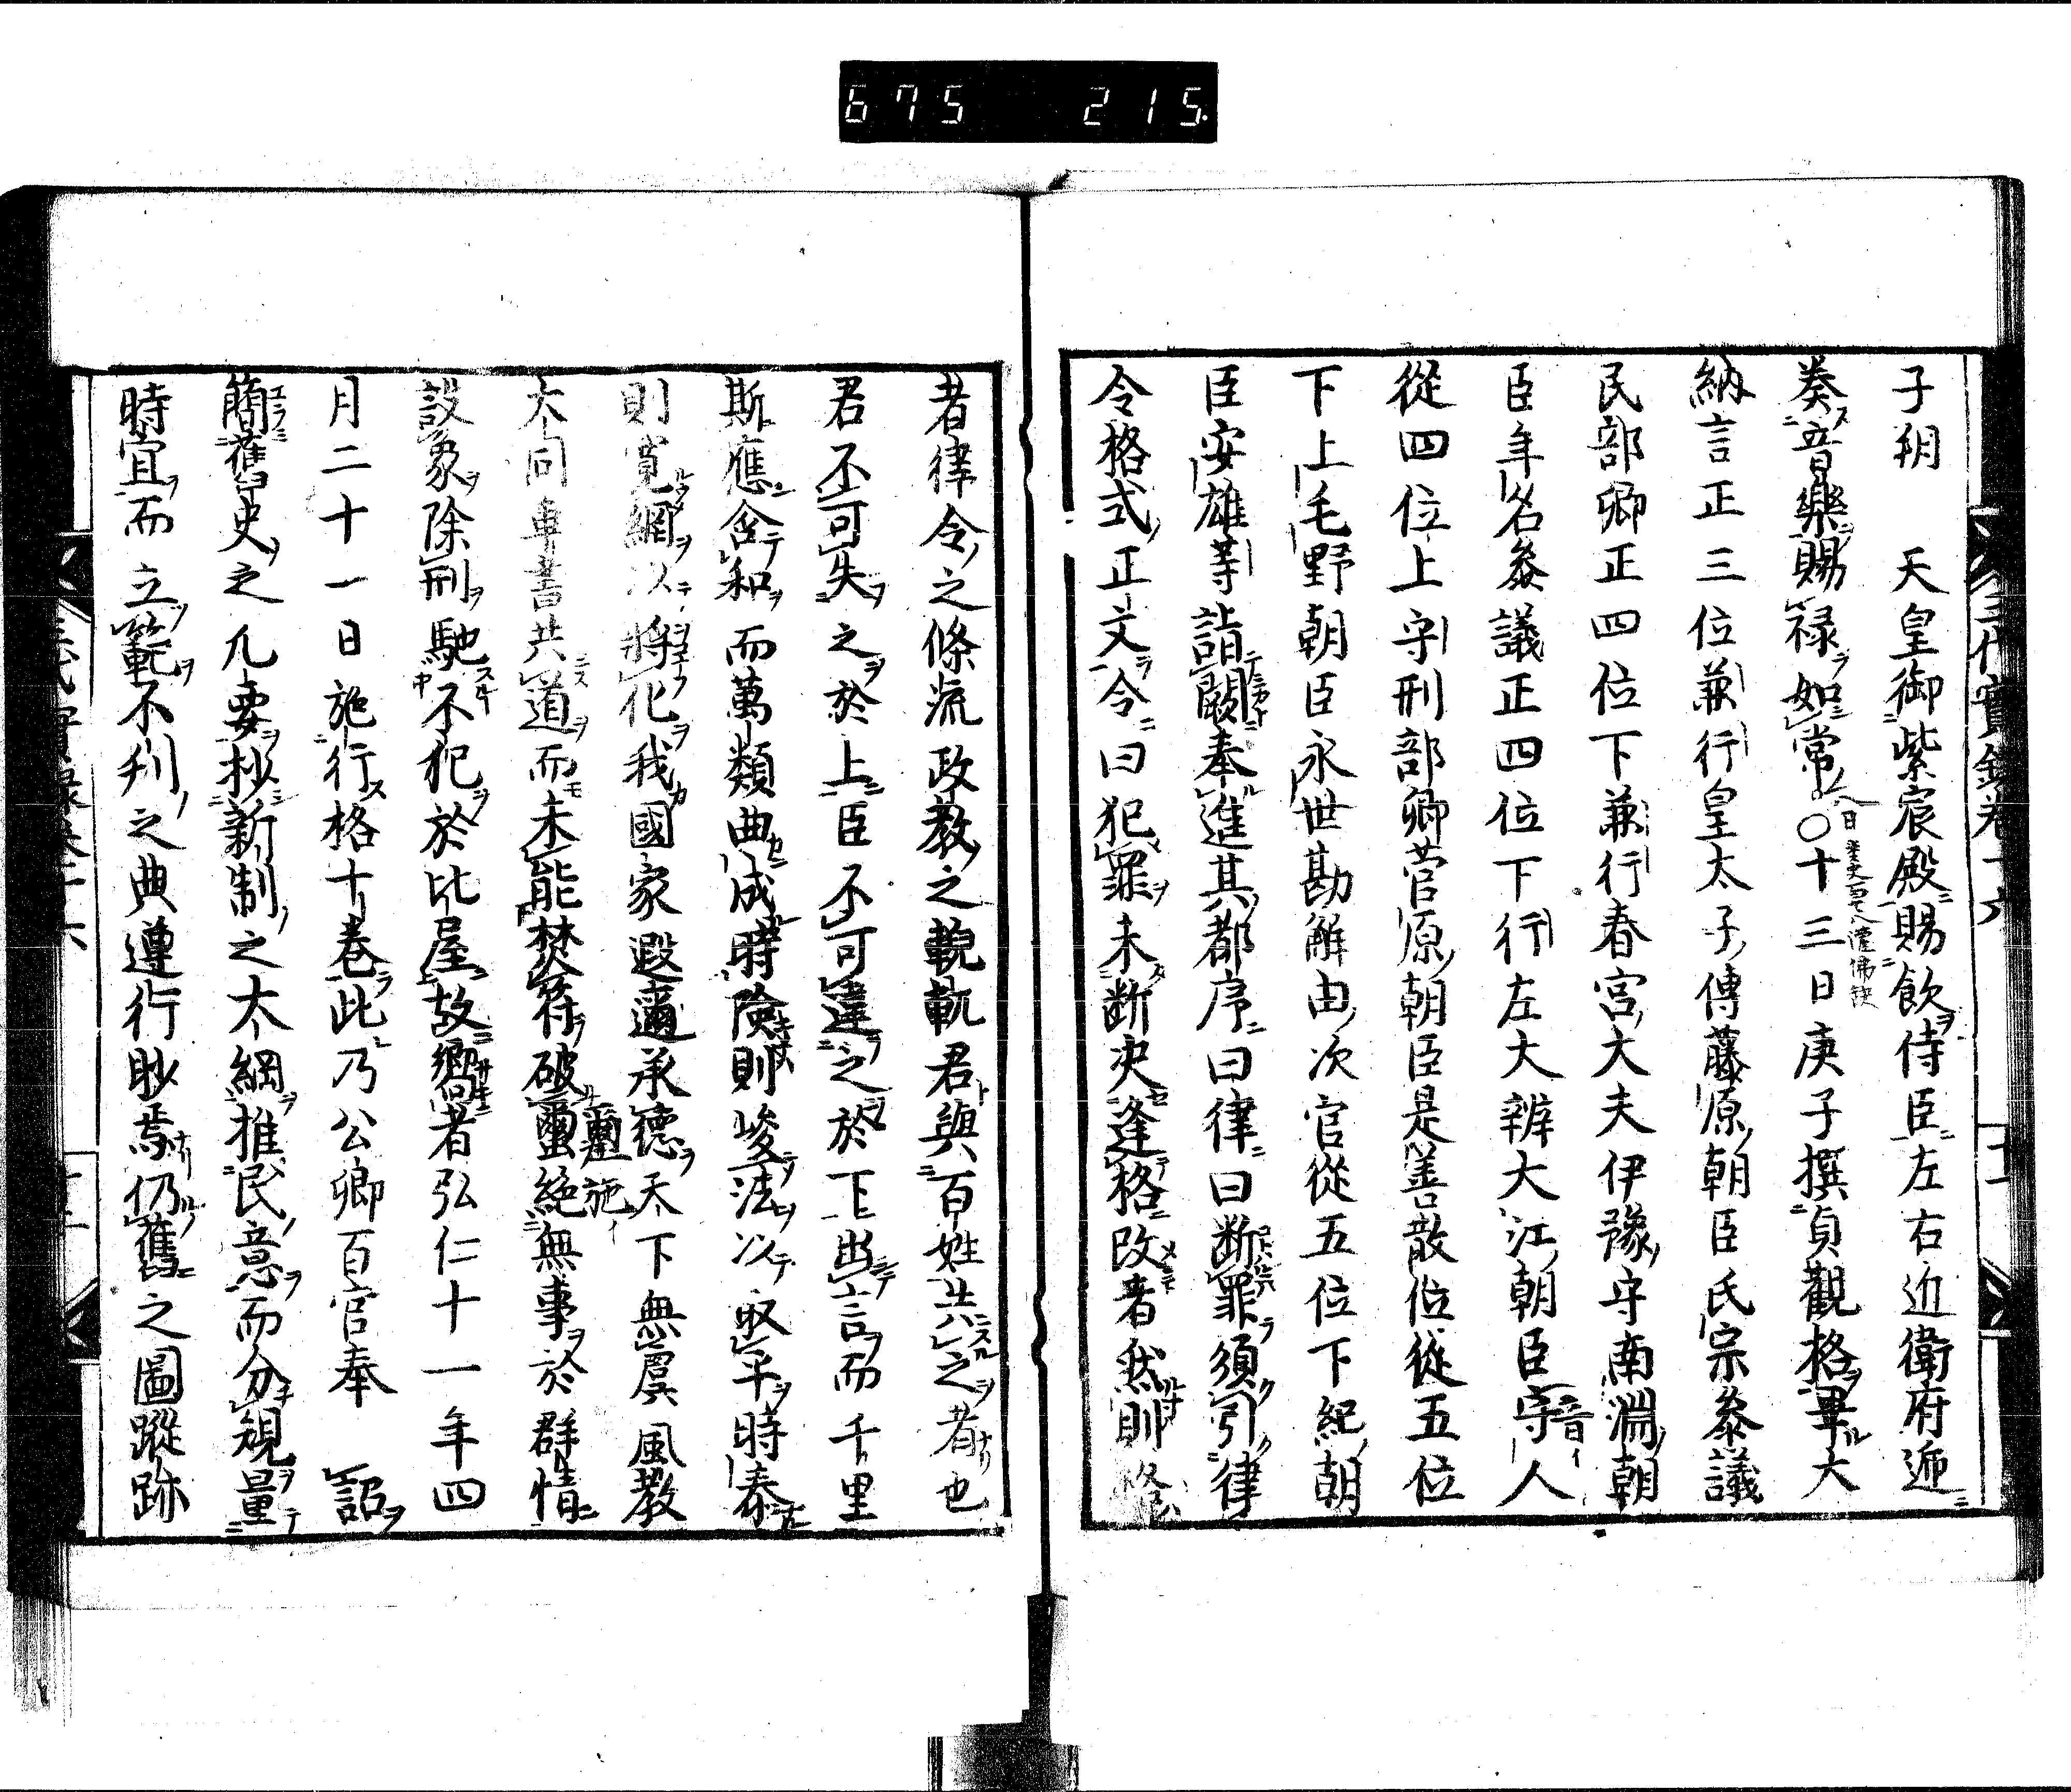 675 215.
子朔 天皇御紫宸殿賜飲侍臣左右近衛府遞
奏音樂賜禄如常〇十三日庚子撰貞觀格畢大
納言正三位兼行皇太子傳藤原朝臣氏宗叅議
民部卿正四位下兼行春宮大夫伊豫守南淵朝
臣年名叅議正四位下行左大辨大江朝臣音人
從四位上守刑部卿菅原朝臣是善散位從五位
下上毛野朝臣永世勘解由次官從五位下紀朝
臣安雄等詣闕奉進其都序曰律曰断罪須引律
令格式正文令曰犯罪未断決逢格改者然則
者律令之條流政教之軌君與百姓共之者也
君不可失之於上臣不可違之於下出言而千里
斯應含和而萬類曲成時險則峻法以取平時泰
則寛網以將化我國家遐邇承徳天下無虞風教
大同車書共道而未能焚符破璽絶無事於群情
設象除刑馳不犯於比屋故嚮者弘仁十一年四
月二十一日施行格十巻此乃公卿百官奉 詔
簡舊史之凡要抄新制之大綱推民意而分規量
時宜而立範不刋之典遵行眇焉仍舊之圖蹤跡